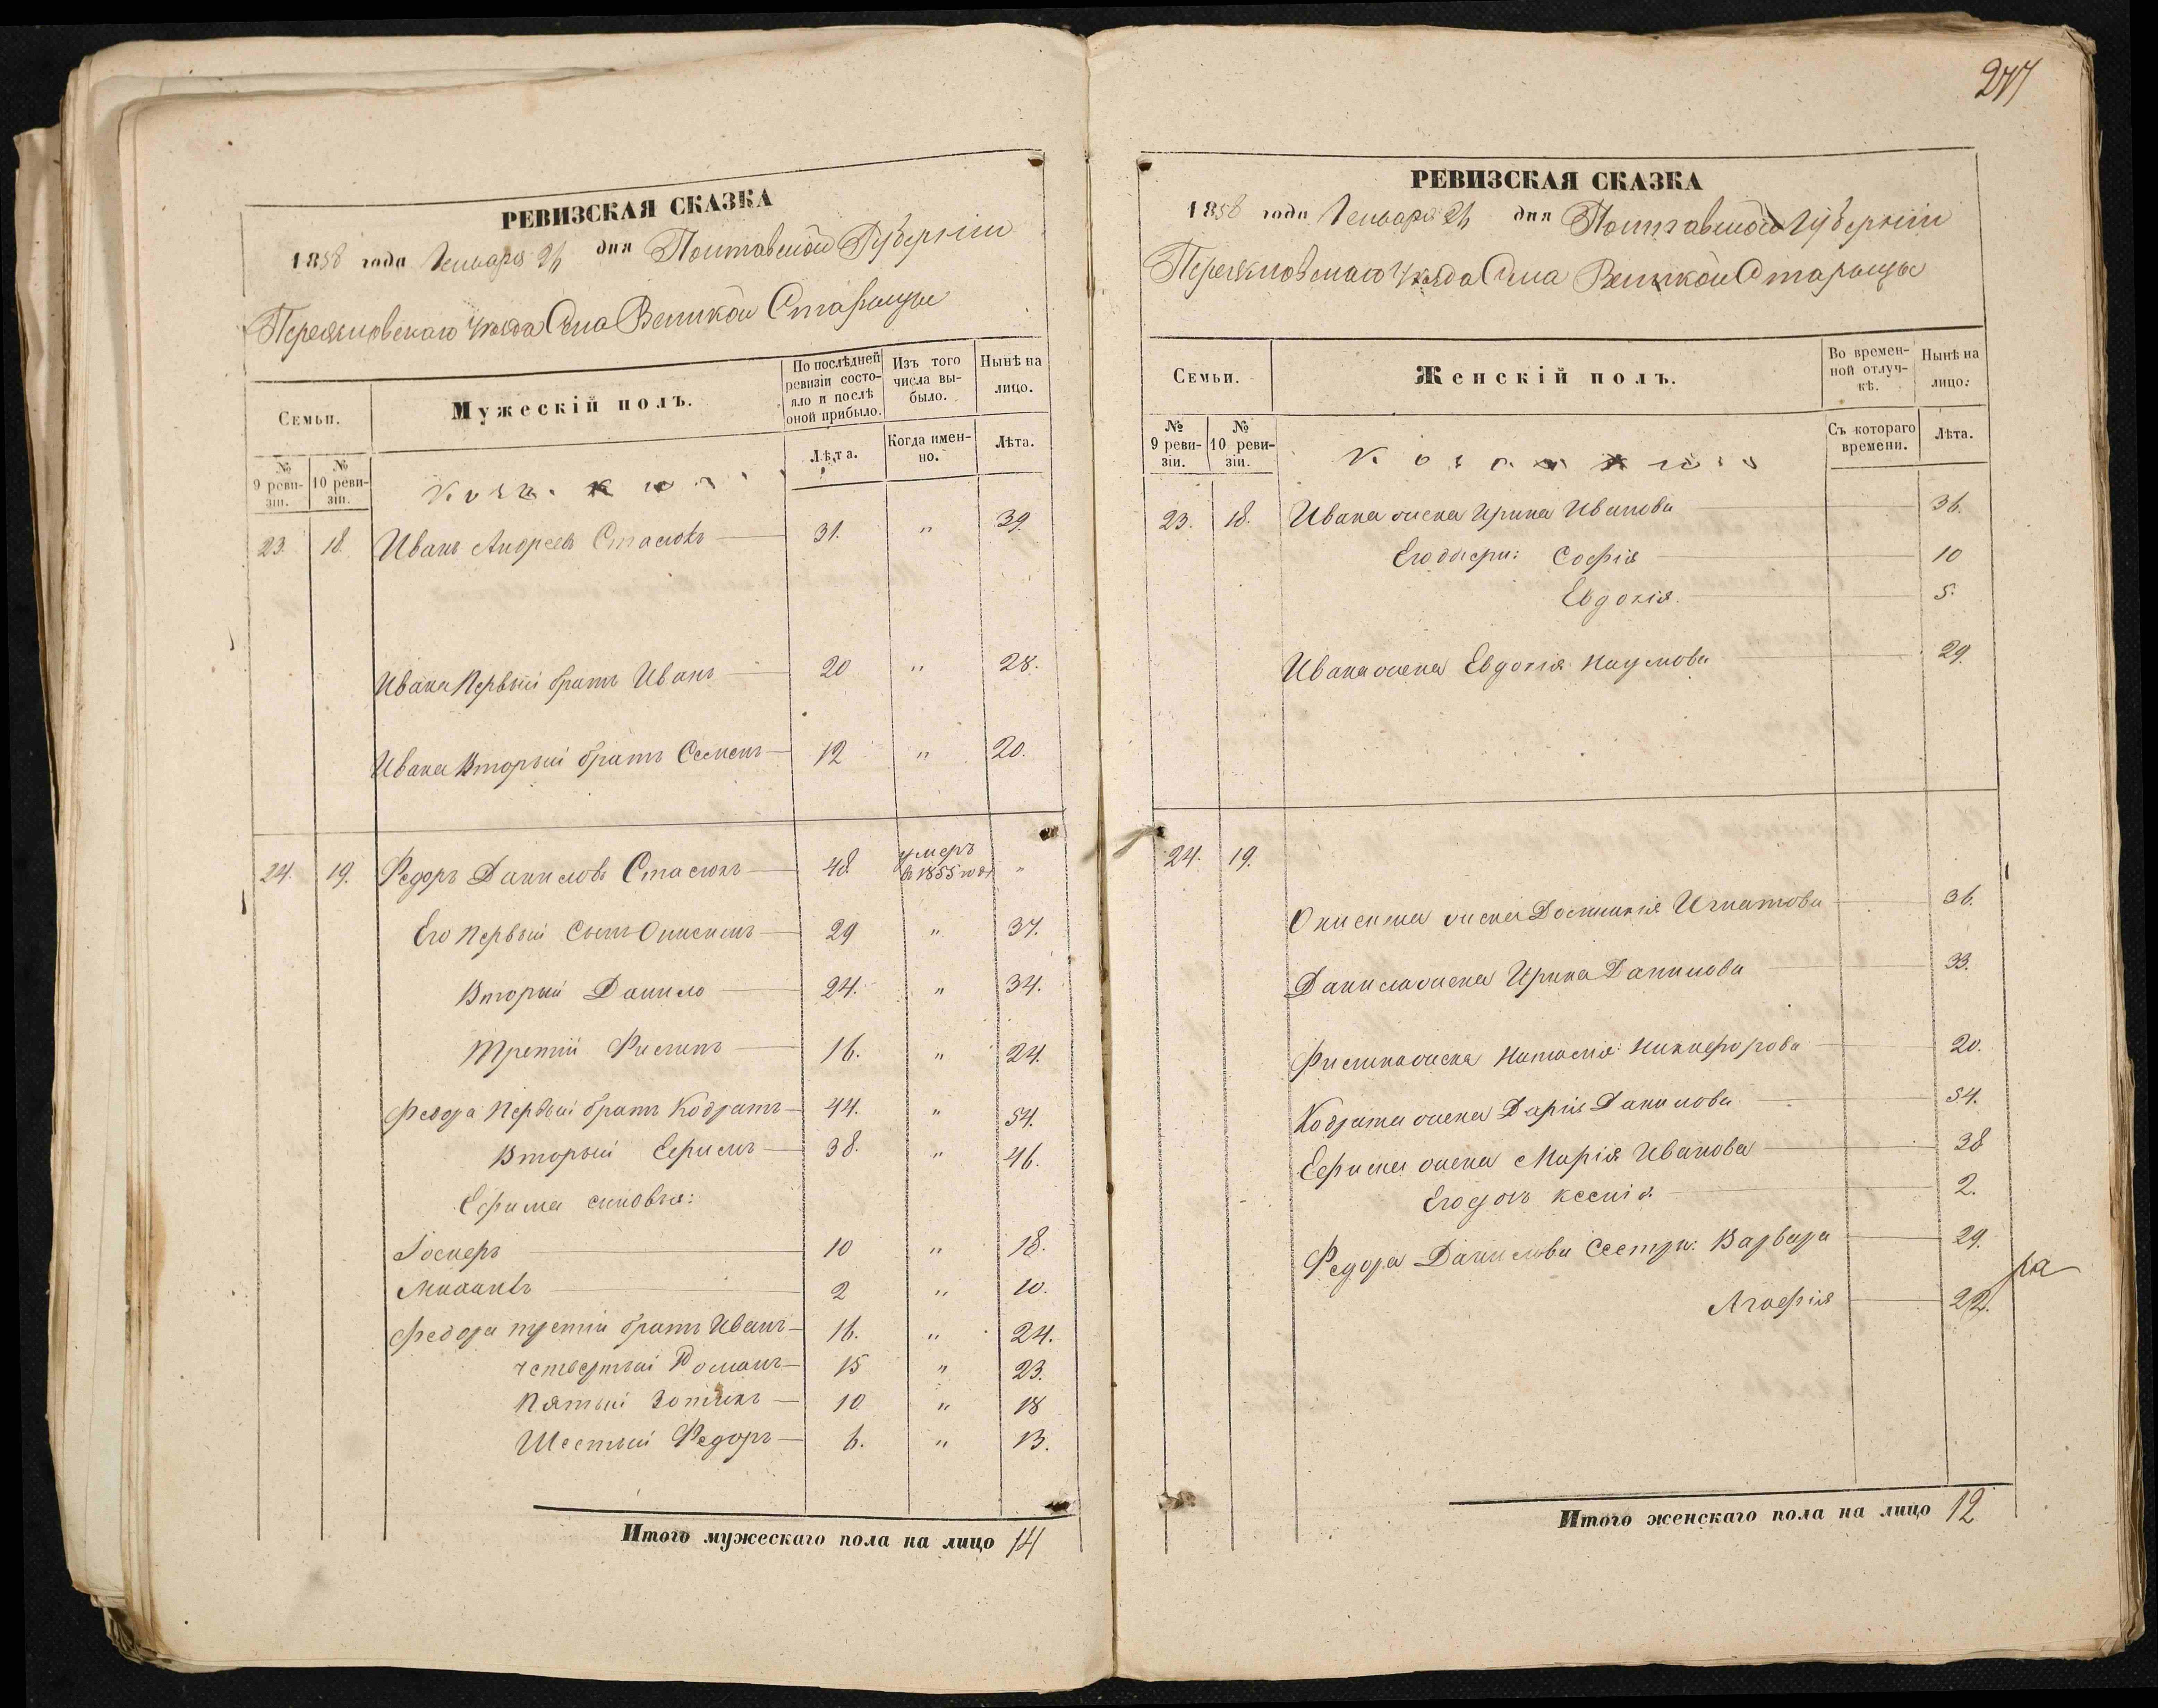 РЕВИЗСКАЯ СКАЗКА
1858 года Генваря 26 дня Полтавской Губернiи
Переяславскаго Уѣзда Села Великой Старицы
Семьи.
Мужескiй полъ.
По послѣдней ревизiи состояло и послѣ оной прибыло.
Изъ того числа выбыло.
Ныпѣ на лицо.
№ 9 ревизiи.
№ 10 ревизiи.
Лѣта.
Когда именно.
Лѣта.
23. 18. Иванъ Андреевъ Стасюкъ 31. " 39.
Ивана Первый братъ Иванъ 20 " 28.
Ивана Вторый братъ Семенъ 12 " 20.
24. 19. Федоръ Даниловъ Стасюкъ 48. умеръ в 1855 годѣ "
Его Первый Сынъ Онисимъ 29 " 37.
Вторый Данило 24. " 34.
Третiй Филипъ 16. " 24.
Федора Первый братъ Кодратъ 44. " 54.
Вторый Ефимъ 38. " 46.
Ефима синовья:
10 " 18.
2 " 10.
Федора третiй братъ Иванъ 16. " 24.
четвертый Романъ 15 " 23.
Пятый Зотикъ 10 " 18
Шестый Федоръ 6. " 13.
Итого мужескаго пола на лицо 14
277
РЕВИЗСКАЯ СКАЗКА
1858 года Генваря 26 дня Полтавской Губернiи
Переяславскаго Уѣзда Села Великой Старицы
Семьи.
Женскiй полъ.
Во временной отлучкѣ.
Нынѣ на лицо.
№ 9 ревизiи.
№ 10 ревизiи.
Съ котораго времени.
Лѣта.
23. 18. Ивана жена Ирина Иванова 36.
Его дочери: Софiя 10
Евдокiя. 5.
Ивана жена Евдокiя Наумова 29.
24. 19.
Онисима жена Домникiя Игнатова 36.
Данила жена Ирина Данилова 33.
Филипа жена Наталiя Никифорова 20.
Кодрата жена Дарiя Данилова 54.
Ефима жена Марiя Иванова 38
Его дочь Ксенiя 2.
Федора Данилова Сестры: Варвара 29.
Агафiя 22.
Итого женскаго пола на лицо 12